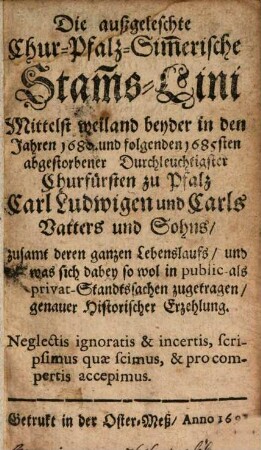 Die außgeleschte
Chur-Pfaltz-Sim̄erische
Stam̄s-Lini
Mittelst weiland beyder in den
Jahren 1680. und folgenden 1685sten
abgestorbener Durchleuchtigster
Churfürsten zu Pfaltz
Carl Ludwigen und Carls
Vatters und Sohns/
zusamt deren ganzen Lebenslaufs/ und
was sich dabey so wol in public-als
privat-Standtssachen zugetragen/
genauer Historischer Erzehlung.
Neglectis ignoratis & incertis, scri-
psimus quæ scimus, & pro com-
pertis accepimus.
Getrukt in der Oster-Meß/ Anno